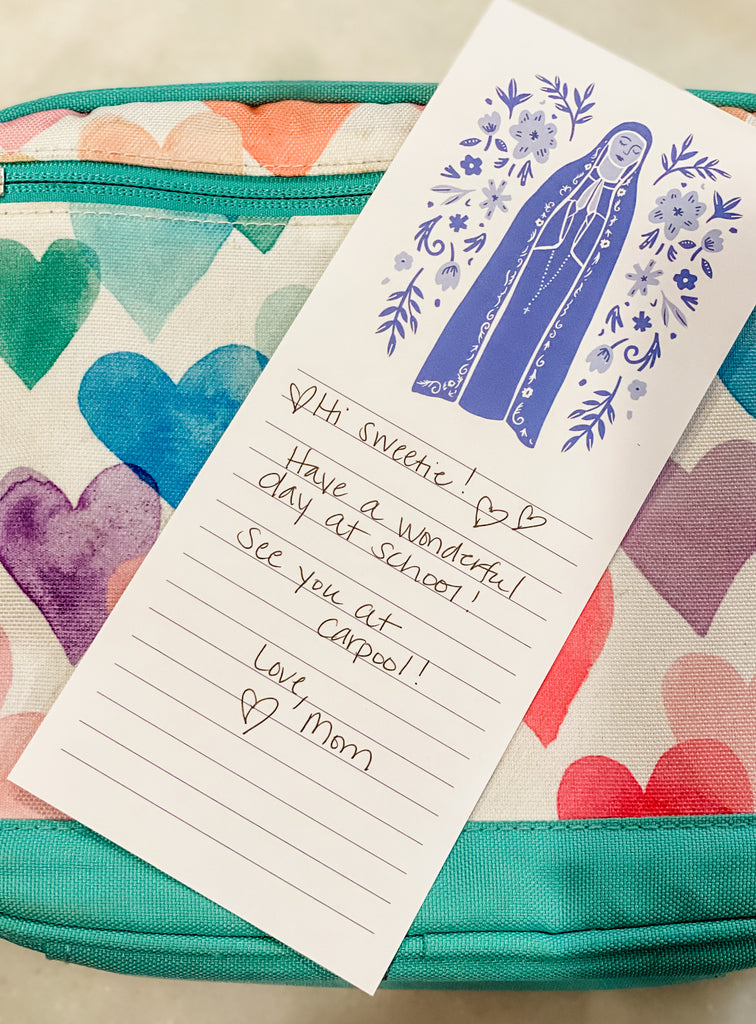 Hi sweetie!
Have a wonderful
day at school!
See you at
carpool!
Love,
Mom